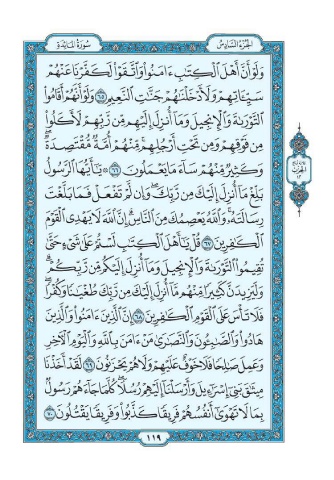 الجزء السادس سورة المائدة
وَلَوْ أَنَّ أَهْلَ ٱلْكِتَٰبِ ءَامَنُوا۟ وَٱتَّقَوْا۟ لَكَفَّرْنَا عَنْهُمْ
سَيِّـَٔاتِهِمْ وَلَأَدْخَلْنَٰهُمْ جَنَّٰتِ ٱلنَّعِيمِ ٦٥ وَلَوْ أَنَّهُمْ أَقَامُوا۟
ٱلتَّوْرَىٰةَ وَٱلْإِنجِيلَ وَمَآ أُنزِلَ إِلَيْهِم مِّن رَّبِّهِمْ لَأَكَلُوا۟
مِن فَوْقِهِمْ وَمِن تَحْتِ أَرْجُلِهِم مِّنْهُمْ أُمَّةٌ مُّقْتَصِدَةٌ
وَكَثِيرٌ مِّنْهُمْ سَآءَ مَا يَعْمَلُونَ ٦٦ ۞ يَٰٓأَيُّهَا ٱلرَّسُولُ
بَلِّغْ مَآ أُنزِلَ إِلَيْكَ مِن رَّبِّكَ وَإِن لَّمْ تَفْعَلْ فَمَا بَلَّغْتَ
رِسَالَتَهُۥ وَٱللَّهُ يَعْصِمُكَ مِنَ ٱلنَّاسِ إِنَّ ٱللَّهَ لَا يَهْدِى ٱلْقَوْمَ
ٱلْكَٰفِرِينَ ٦٧ قُلْ يَٰٓأَهْلَ ٱلْكِتَٰبِ لَسْتُمْ عَلَىٰ شَىْءٍ حَتَّىٰ
تُقِيمُوا۟ ٱلتَّوْرَىٰةَ وَٱلْإِنجِيلَ وَمَآ أُنزِلَ إِلَيْكُم مِّن رَّبِّكُمْ
وَلَيَزِيدَنَّ كَثِيرًا مِّنْهُم مَّآ أُنزِلَ إِلَيْكَ مِن رَّبِّكَ طُغْيَٰنًا وَكُفْرًا
فَلَا تَأْسَ عَلَى ٱلْقَوْمِ ٱلْكَٰفِرِينَ ٦٨ إِنَّ ٱلَّذِينَ ءَامَنُوا۟ وَٱلَّذِينَ
هَادُوا۟ وَٱلصَّٰبِـُٔونَ وَٱلنَّصَٰرَىٰ مَنْ ءَامَنَ بِٱللَّهِ وَٱلْيَوْمِ ٱلْءَاخِرِ
وَعَمِلَ صَٰلِحًا فَلَا خَوْفٌ عَلَيْهِمْ وَلَا هُمْ يَحْزَنُونَ ٦٩ لَقَدْ أَخَذْنَا
مِيثَٰقَ بَنِىٓ إِسْرَٰٓءِيلَ وَأَرْسَلْنَآ إِلَيْهِمْ رُسُلًا كُلَّمَا جَآءَهُمْ رَسُولٌۢ
بِمَا لَا تَهْوَىٰٓ أَنفُسُهُمْ فَرِيقًا كَذَّبُوا۟ وَفَرِيقًا يَقْتُلُونَ ٧٠
١١٩